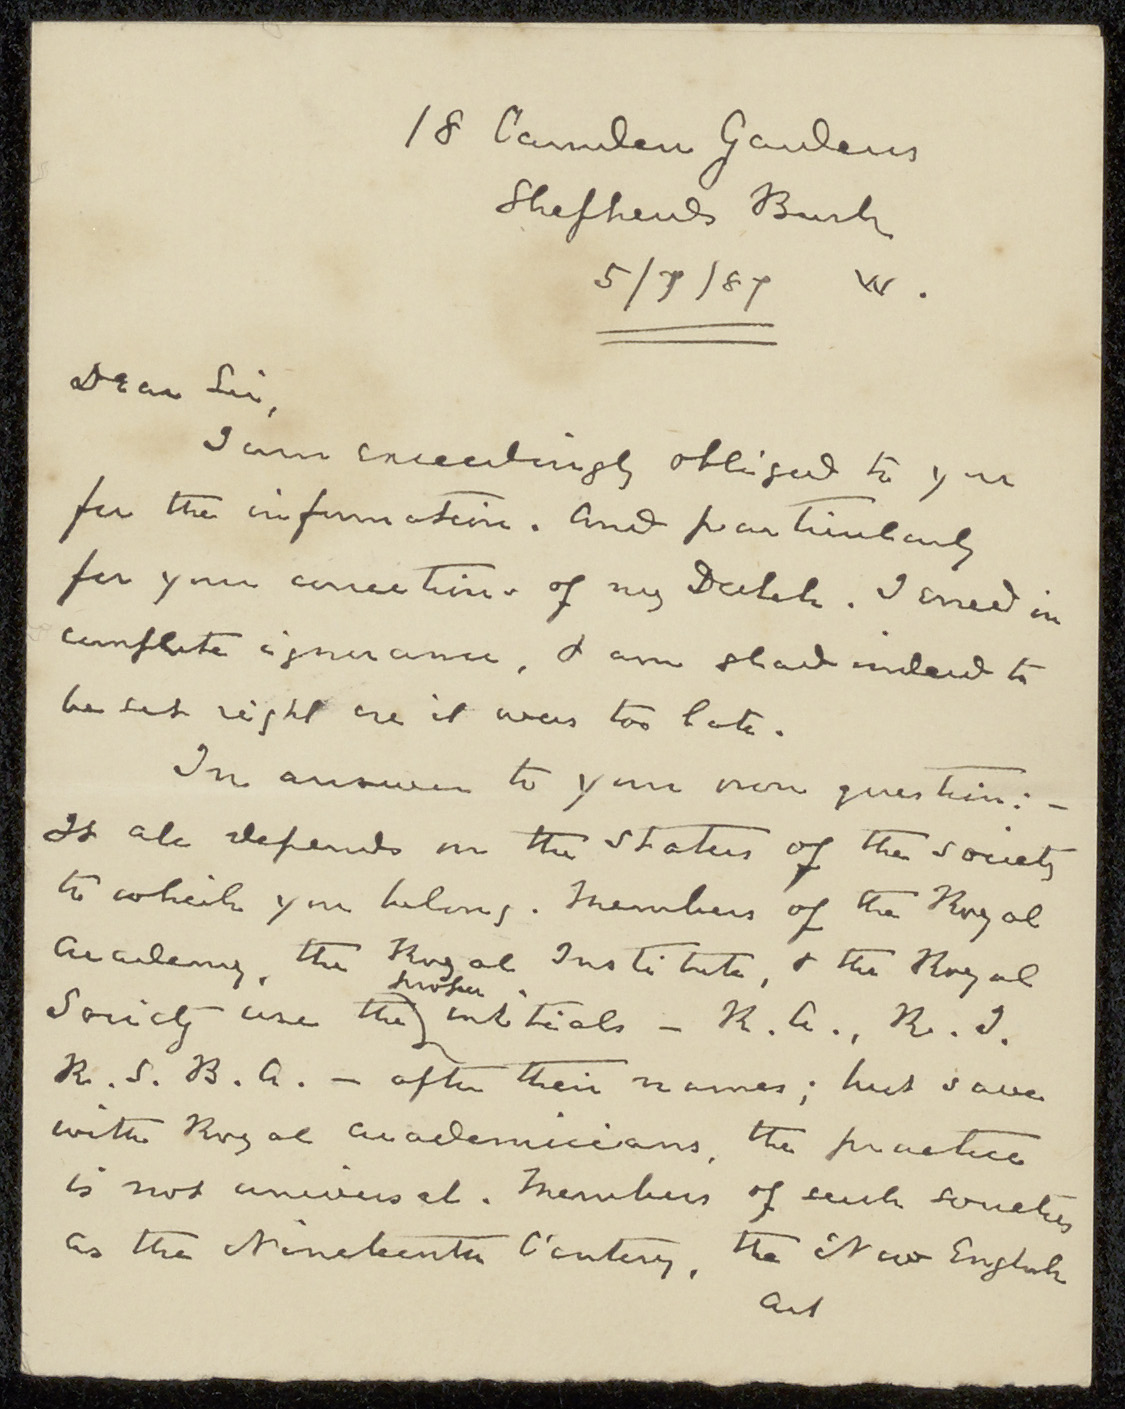 18 Camden Gardens
Shepherds Bush
5/7/87 W.
Dear Sir,
I am exceedingly obliged to you
for the information. And particularly
for your correction. of my Dutch. I erred in
complete ignorance, & am glad indeed to
be set right ere it was too late.
In answer to your own question:-
It all depends on the status of the society
to which you belong. Members of the Royal
Academy, the Royal Institute, & the Royal
Society use the proper initials - R.A., R.I.
R.S.B.A. - after their names; but save
with Royal Academicians, the practice
is not universal. Members of such societies
as the Nineteenth Century, the New English
Art